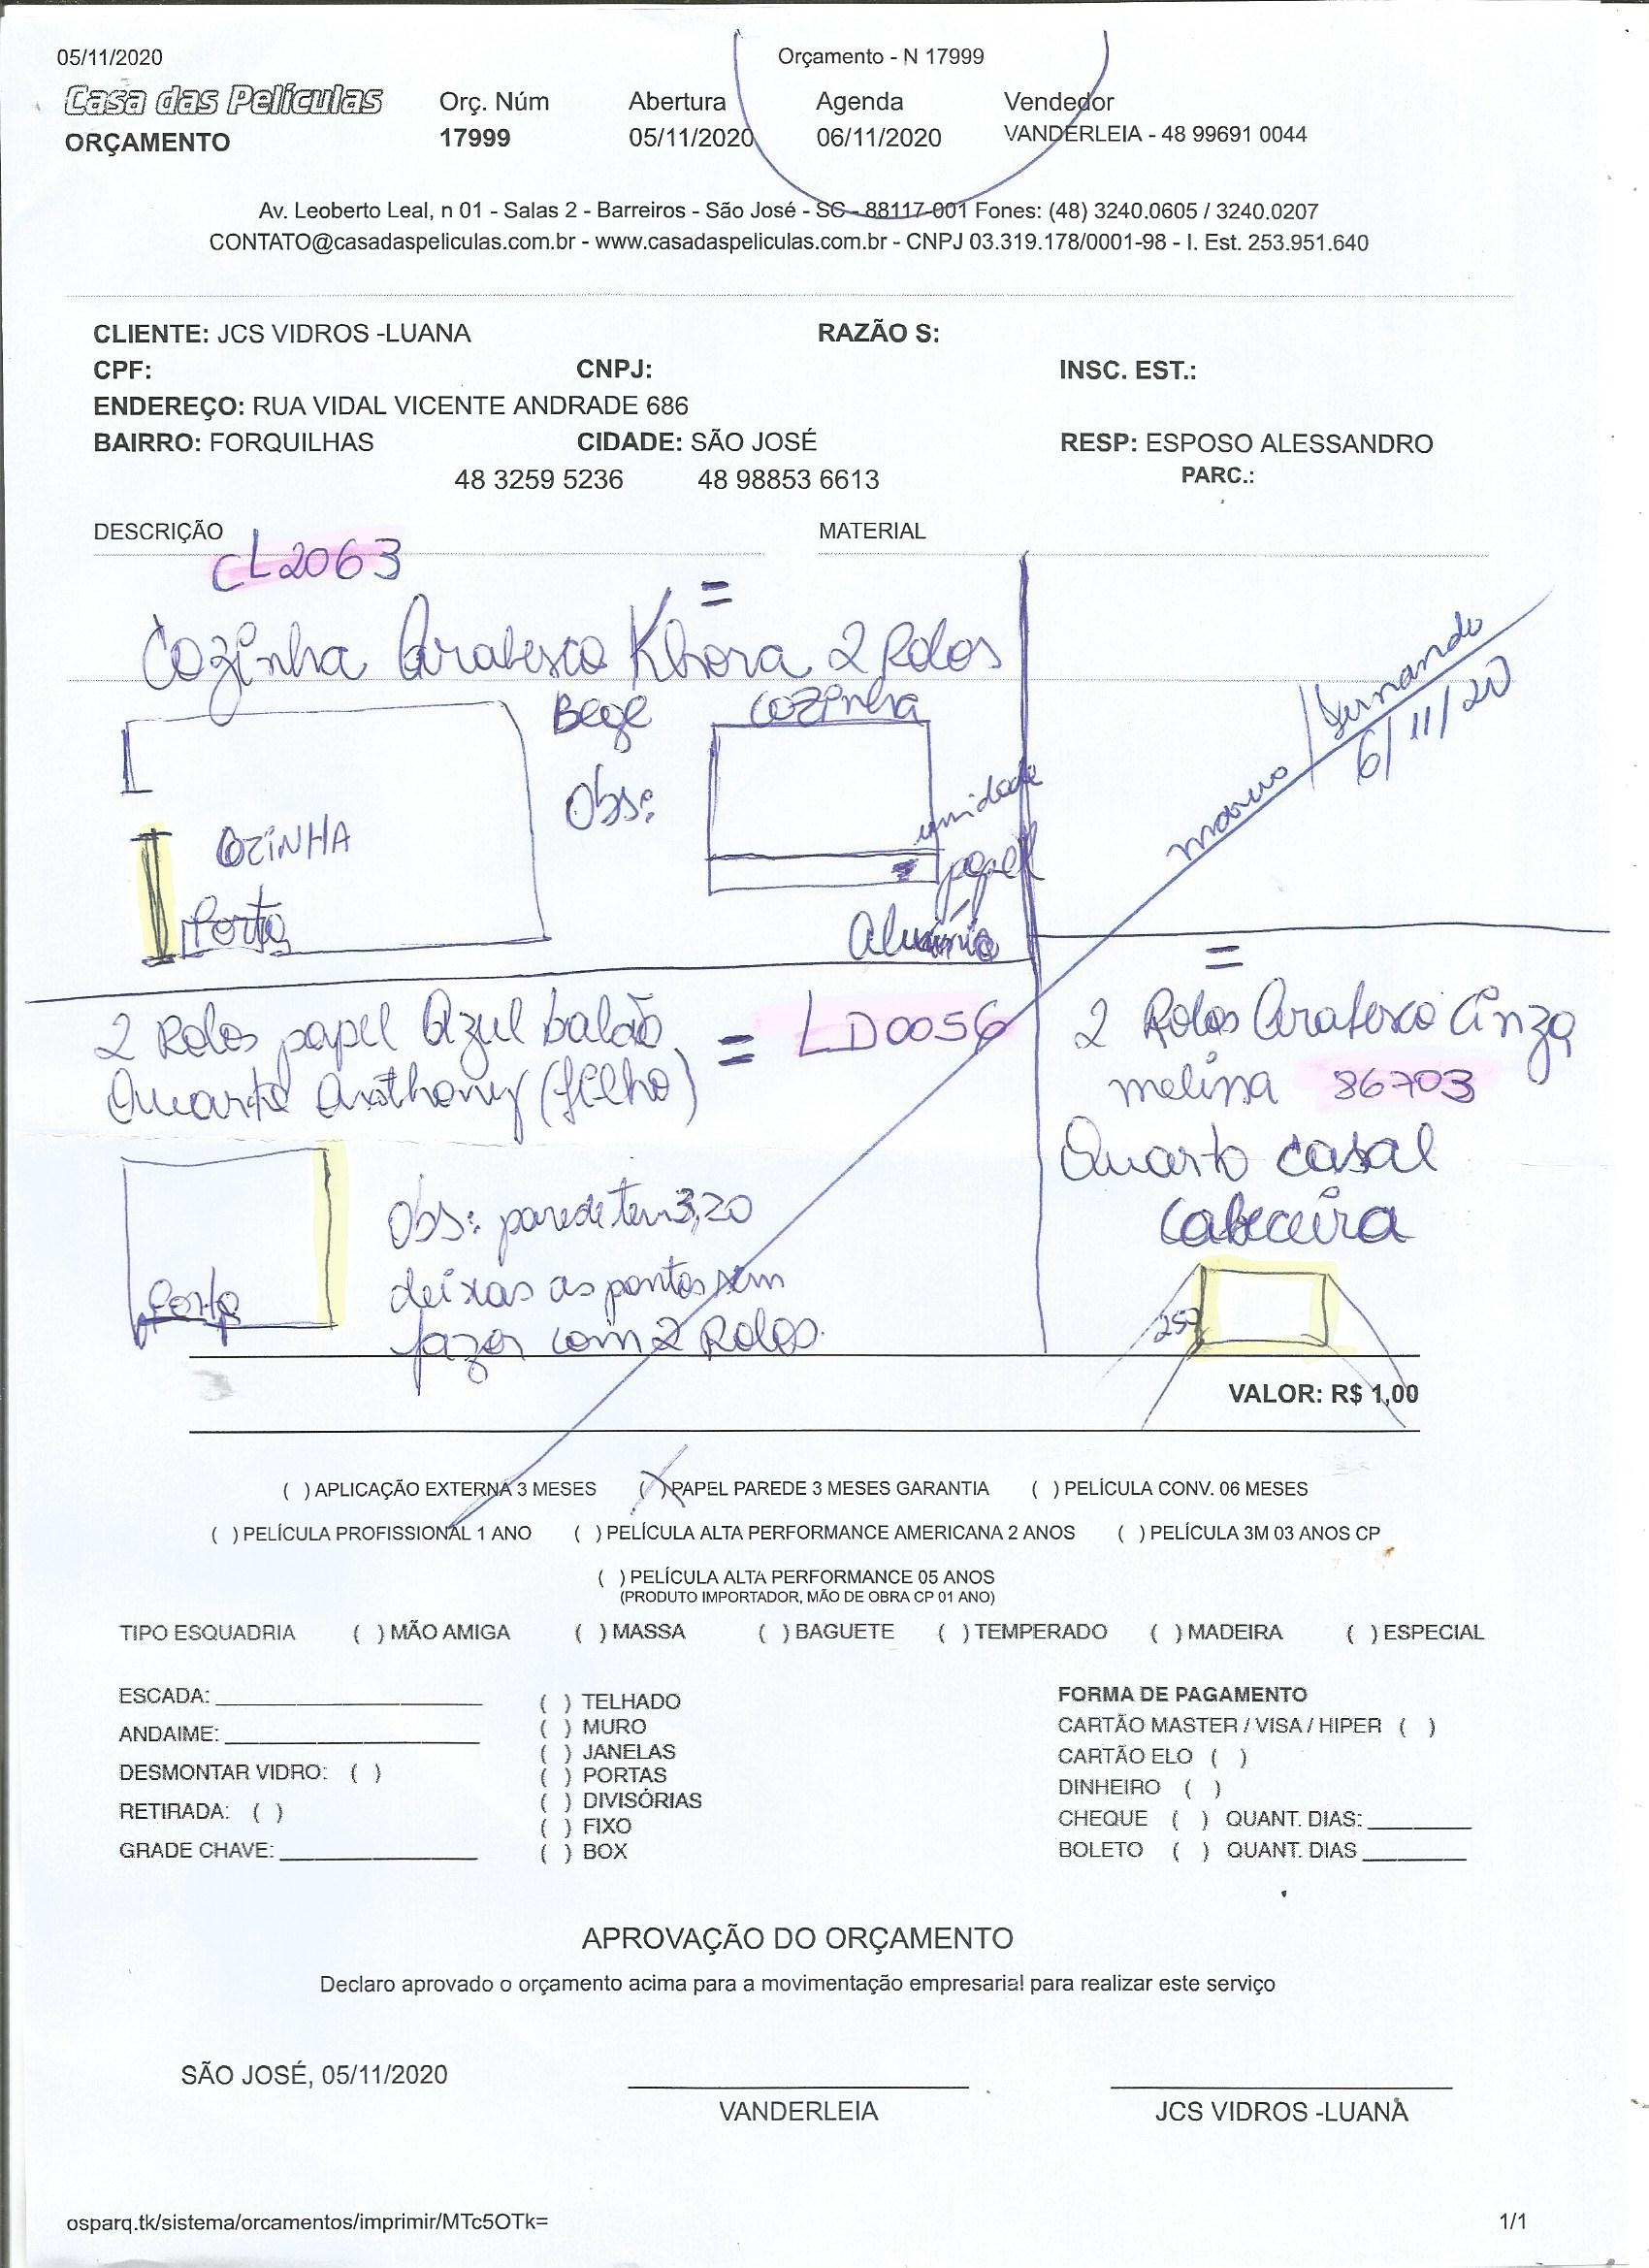 05/11/2020 Orçamento - N 17999
Casa das Películas
ORÇAMENTO
Orç. Núm Abertura Agenda Vendedor
17999 05/11/2020 06/11/2020 VANDERLEIA - 48 99691 0044
Av. Leoberto Leal, n 01 - Salas 2 - Barreiros - São José - SC - 88117-001 Fones: (48) 3240.0605 / 3240.0207
CONTATO@casadaspeliculas.com.br - www.casadaspeliculas.com.br - CNPJ 03.319.178/0001-98 - I. Est. 253.951.640
CLIENTE: JCS VIDROS -LUANA RAZÃO S:
CPF: CNPJ: INSC. EST.:
ENDEREÇO: RUA VIDAL VICENTE ANDRADE 686
BAIRRO: FORQUILHAS CIDADE: SÃO JOSÉ RESP: ESPOSO ALESSANDRO
48 3259 5236 48 98853 6613 PARC.:
DESCRIÇÃO MATERIAL
CL2063
=
Cozinha Arabesco Khora 2 Rolos
Bege
Obs:
cozinha
umidade
papel
Alumínio
COZINHA
Porta
/Fernando
6/11/20
2 Rolos papel Azul balão = LD0056
Quarto Anthony (filho)
Obs: parede tem 3,20
deixas as pontas sem
fazer com 2 Rolos.
Porta
=
2 Rolos Arabesco Cinza
melina 86703
Quarto casal
cabeceira
257
VALOR: R$ 1,00
( ) APLICAÇÃO EXTERNA 3 MESES (X) PAPEL PAREDE 3 MESES GARANTIA ( ) PELÍCULA CONV. 06 MESES
( ) PELÍCULA PROFISSIONAL 1 ANO ( ) PELÍCULA ALTA PERFORMANCE AMERICANA 2 ANOS ( ) PELÍCULA 3M 03 ANOS CP
( ) PELÍCULA ALTA PERFORMANCE 05 ANOS
(PRODUTO IMPORTADOR, MÃO DE OBRA CP 01 ANO)
TIPO ESQUADRIA ( ) MÃO AMIGA ( ) MASSA ( ) BAGUETE ( ) TEMPERADO ( ) MADEIRA ( ) ESPECIAL
ESCADA:
ANDAIME:
DESMONTAR VIDRO: ( )
RETIRADA: ( )
GRADE CHAVE:
( ) TELHADO
( ) MURO
( ) JANELAS
( ) PORTAS
( ) DIVISÓRIAS
( ) FIXO
( ) BOX
FORMA DE PAGAMENTO
CARTÃO MASTER / VISA / HIPER ( )
CARTÃO ELO ( )
DINHEIRO ( )
CHEQUE ( ) QUANT. DIAS:
BOLETO ( ) QUANT. DIAS
APROVAÇÃO DO ORÇAMENTO
Declaro aprovado o orçamento acima para a movimentação empresarial para realizar este serviço
SÃO JOSÉ, 05/11/2020
VANDERLEIA JCS VIDROS -LUANA
osparq.tk/sistema/orcamentos/imprimir/MTc5OTk= 1/1